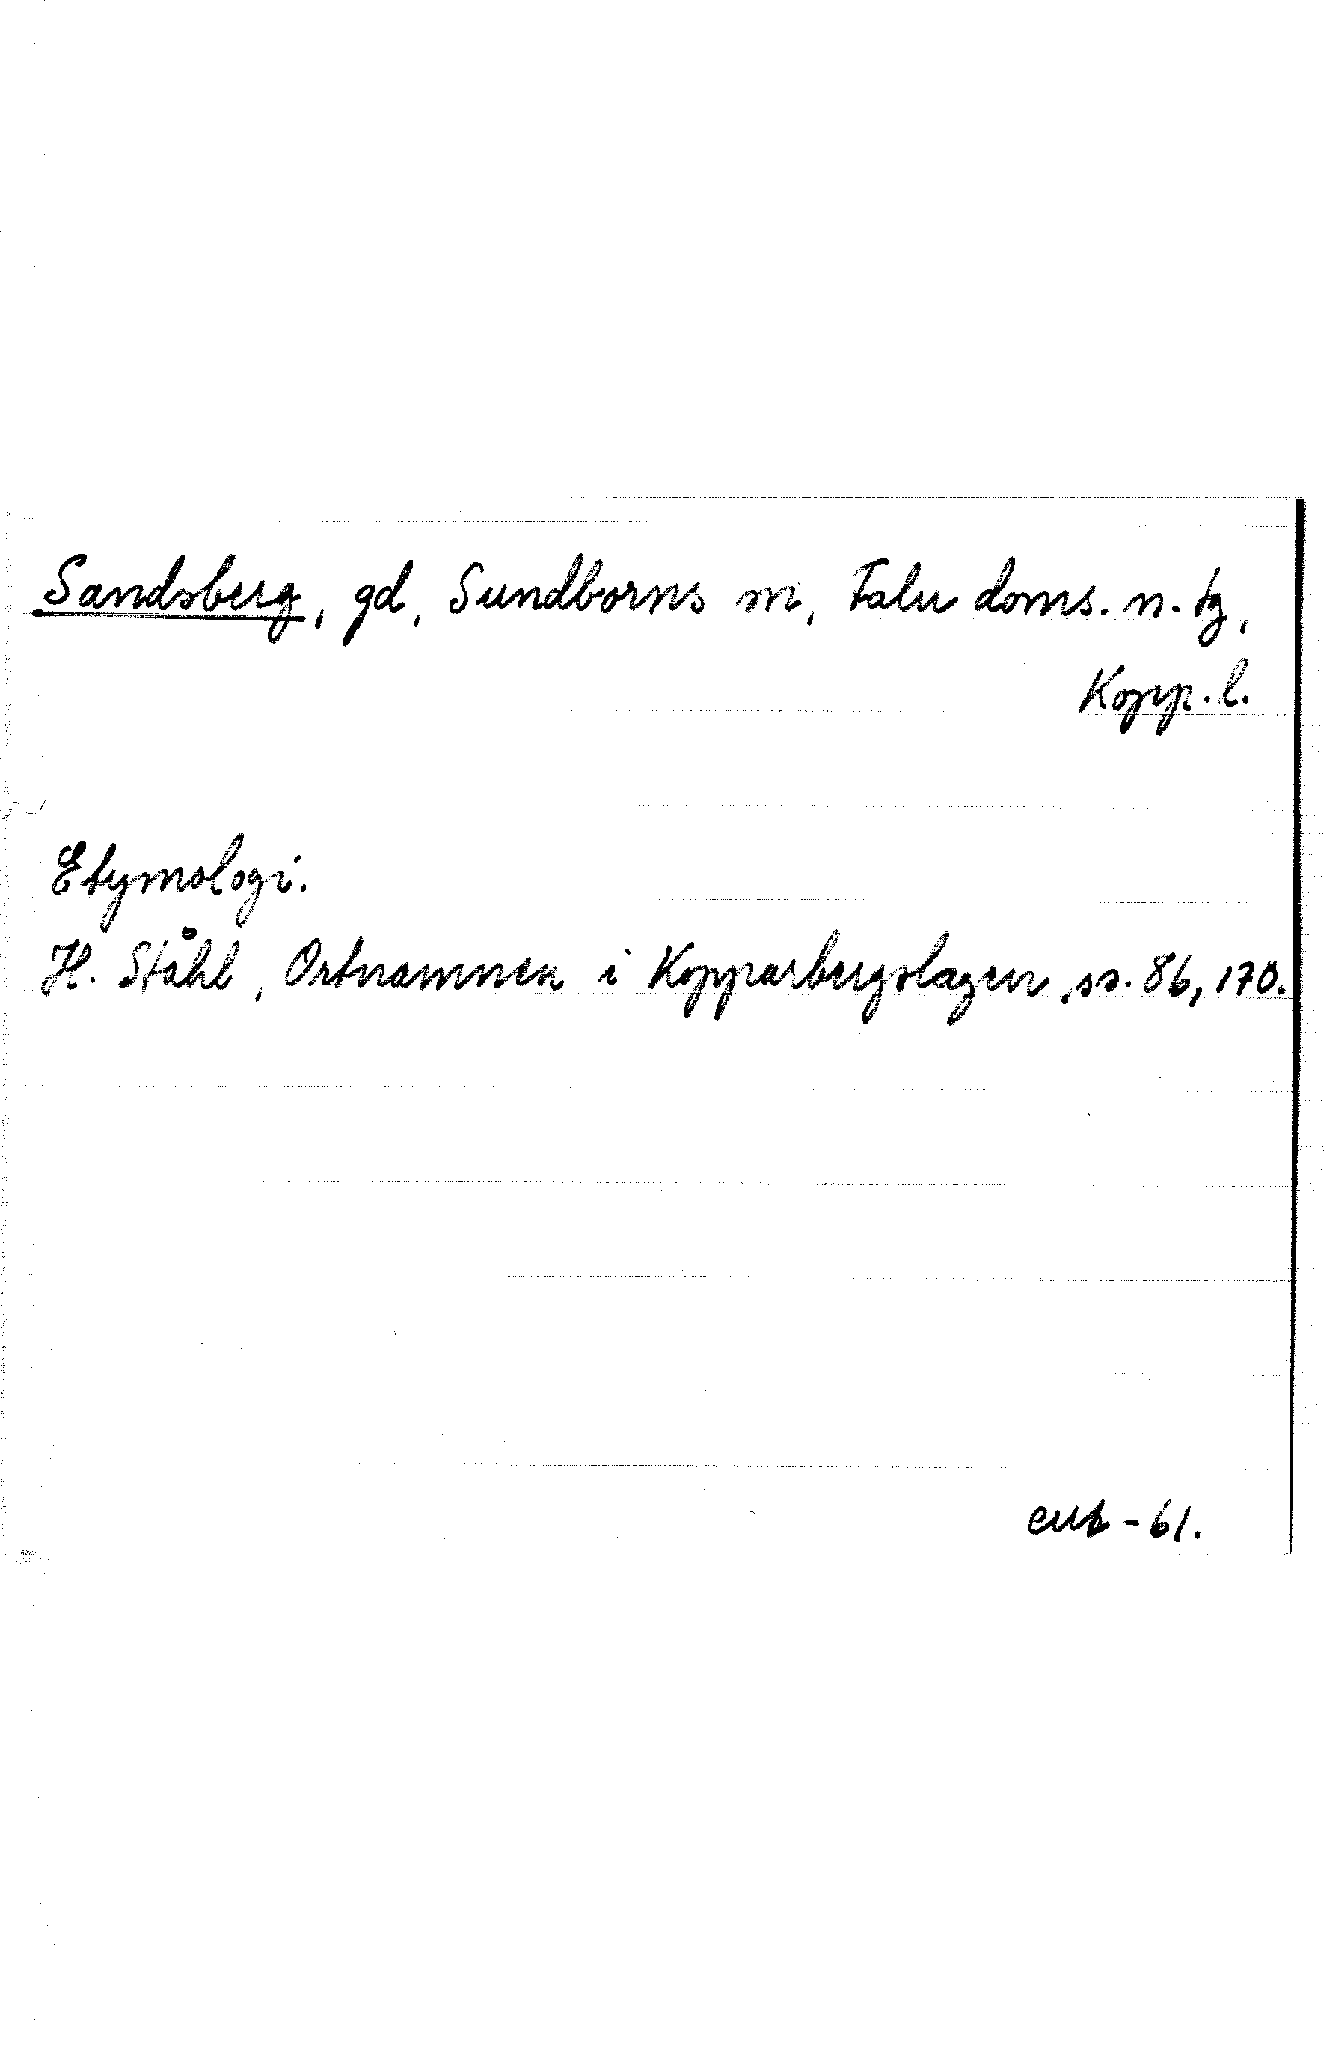 Sandsberg, gd, Sundborns sn, Falu doms. n. tg,
Kopp. l.
Etymologi.
H. Ståhl, Ortnamnen i Kopparbergslagen, ss. 86, 170.
-61.